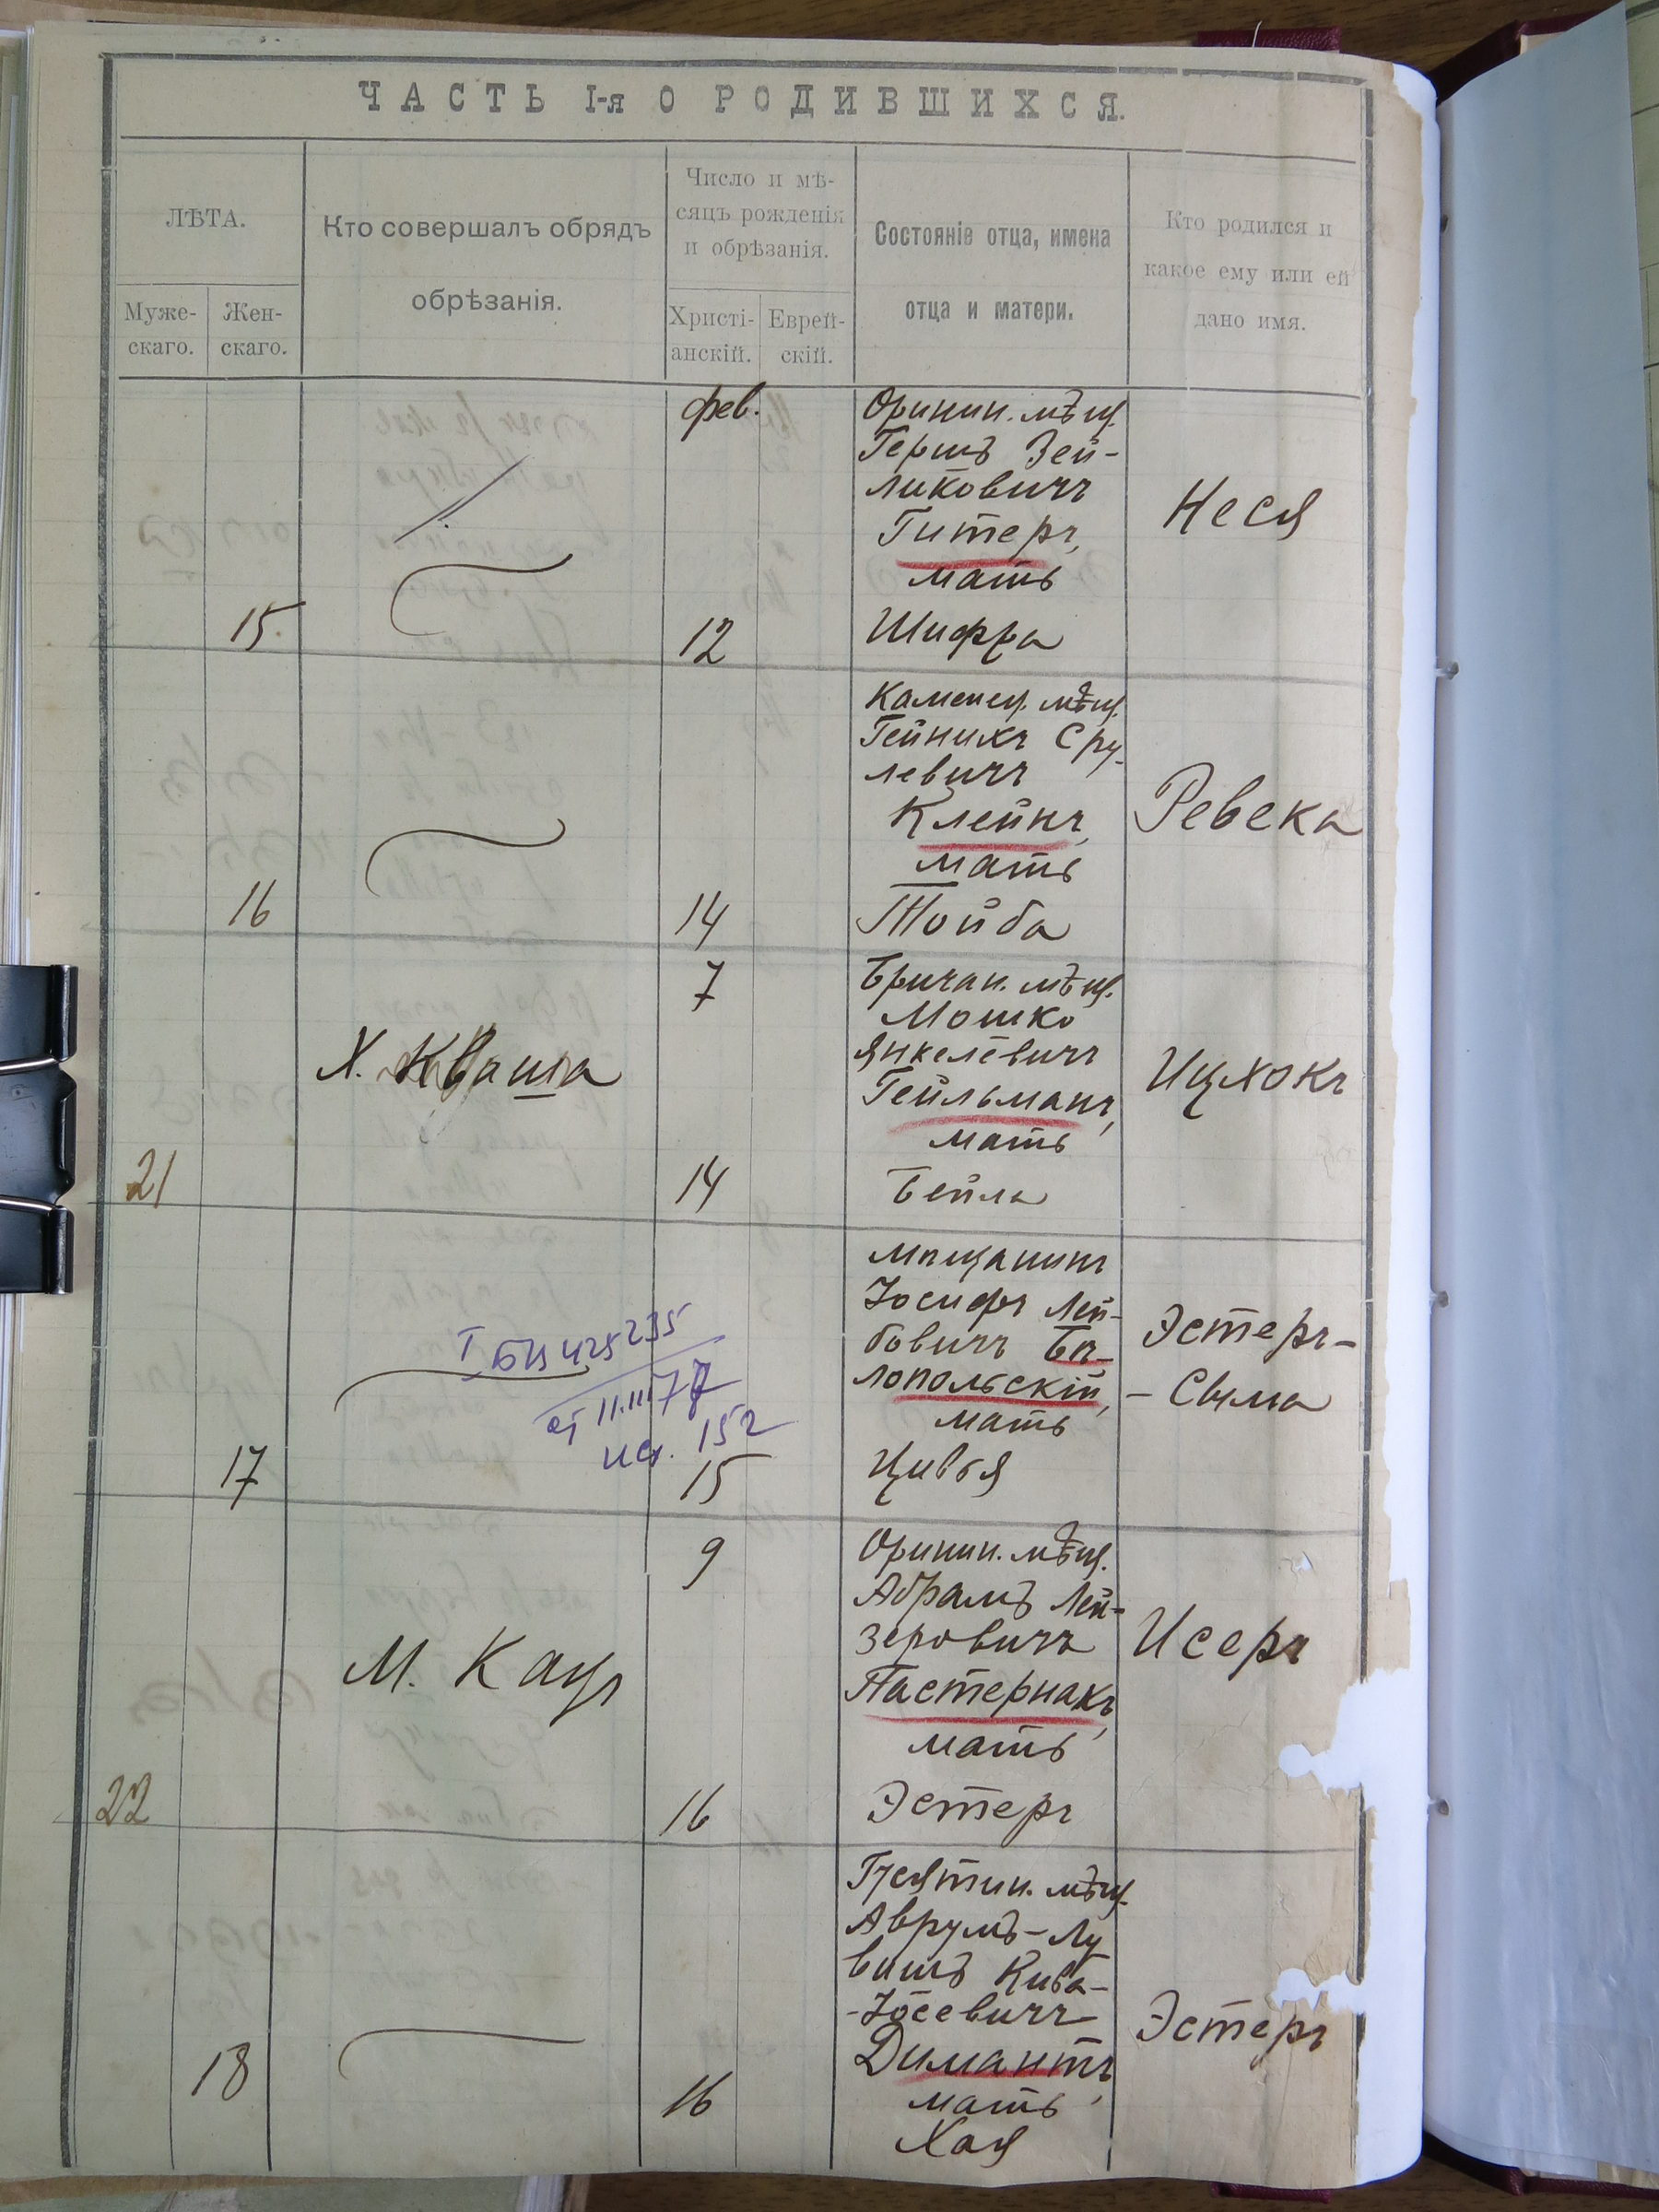 ЧАСТЬ I-я О РОДИВШИХСЯ.
ЛѢТА.
Муже-
скаго.
Жен-
скаго.
Кто совершалъ обрядъ
обрѣзанія.
Число и мѣ-
сяцъ рожденія
и обрѣзанія.
Христі-
анскій.
Еврей-
скій.
Состояніе отца, имена
отца и матери.
Кто родился и
какое ему или ей
дано имя.
15
фев.
12
Оринин. мѣщ.
Гершъ Зей-
ликовичъ
Гитеръ,
мать
Шифра
Неся
16
14
Каменец. мѣщ.
Гейнихъ Сру-
левичъ
Клейнъ,
мать
Тойба
Ревека
21
Х. Кваша
7
14
Бричан. мѣщ.
Мошко
Янкелевичъ
Гейльманъ,
мать
Бейла
Ицхокъ
17
I БЯ 425235
от 11.III 77
исх. 152
15
мѣщанинъ
Іосифъ Лей-
бовичъ Бѣ-
лопольскій,
мать
Цивья
Эстеръ-
- Сыма
22
М. Кацъ
9
16
Оринин. мѣщ.
Абрамъ Лей-
зеровичъ
Пастернакъ,
мать
Эстеръ
Исеръ
18
16
Гусятин. мѣщ.
Аврумъ-Ду
видъ Кива-
-Іосевичъ
Димантъ,
мать
Хая
Эстеръ